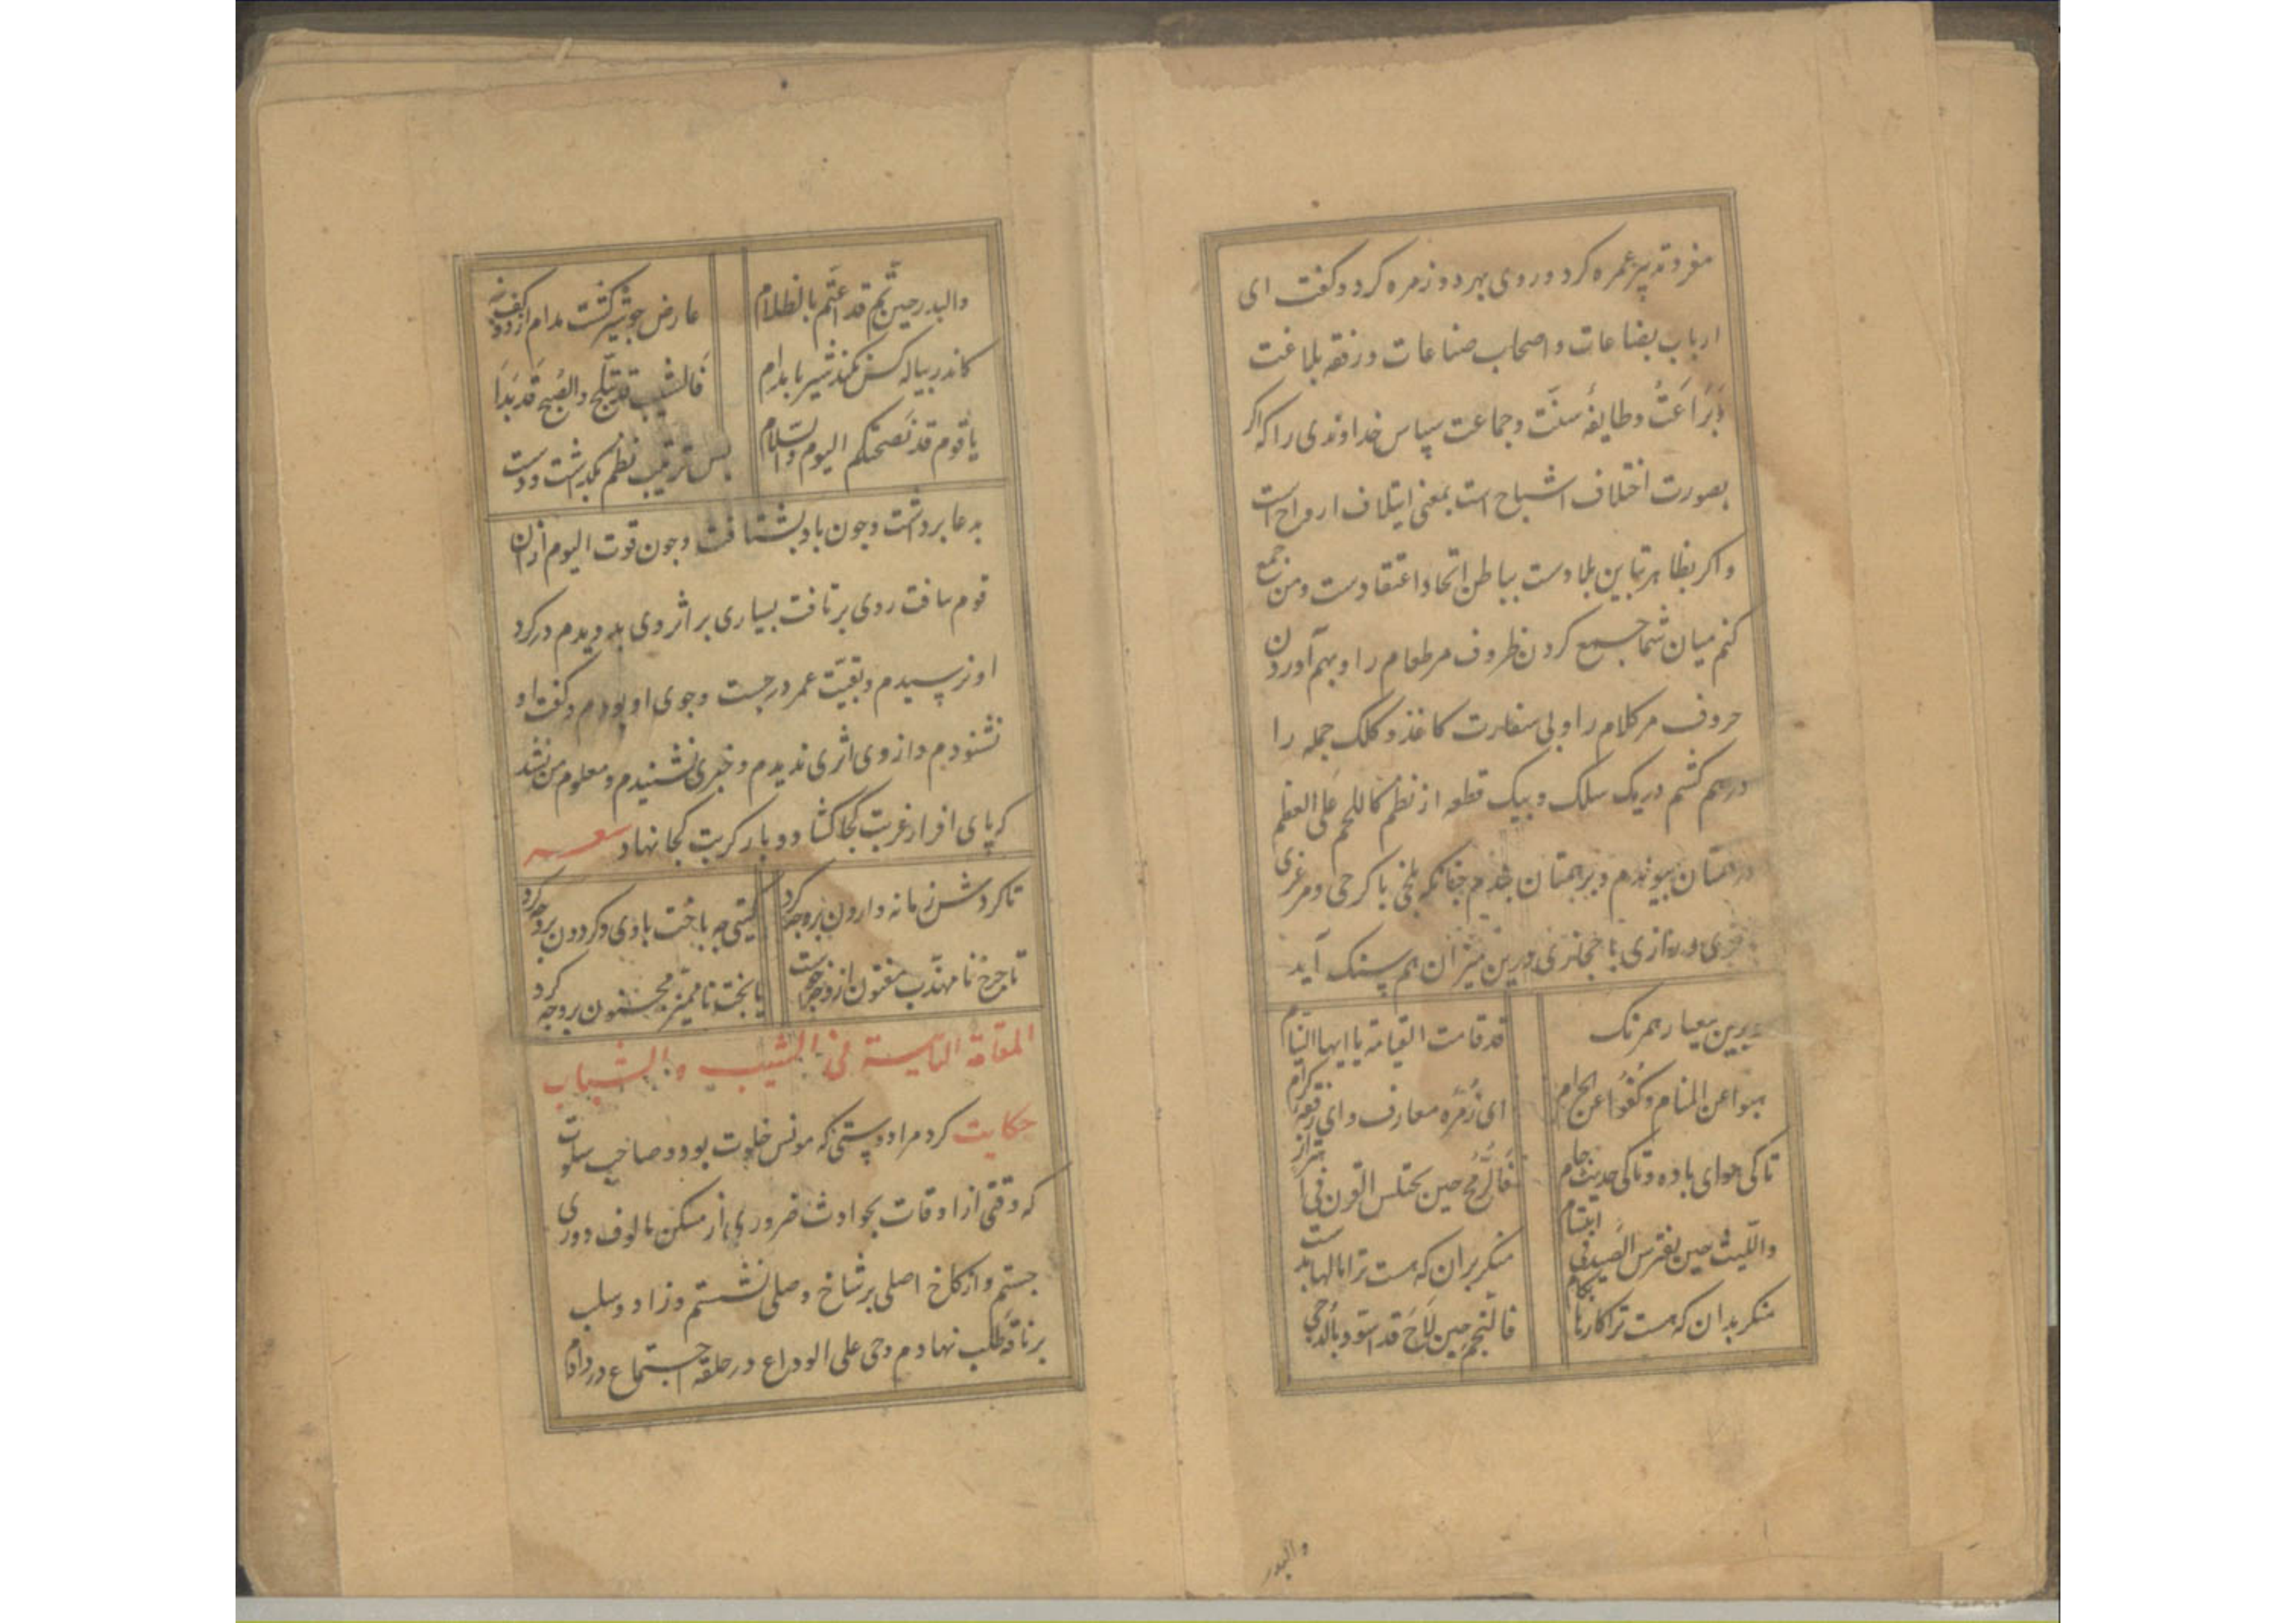 مفروته پیر عمره کرد و روی بهر دو زمره کرد و کفت ای
ارباب بضاعات و اصحاب صناعات و رفقه بلاغت
و بَرَاعَتْ و طایفهٔ سنّت و جماعت سپاس خداوندی را که اکر
بصورت اختلاف اشباح است بمعنی ایتلاف ارواح است
و اکر بظاهر تباین بلادست بباطن اتحاد اعتقادست و من جمع
کنم میان شما جمع کردن ظروف مر طعام را و بهم آوردن
حروف مر کلام را و بی سفارت کاغذ و کلک جمله را
درهم کشم در یک سلک و بیک قطعه از نظم کاللحم علی العظم
در همتان پیوندم و برهمتان بندم چنانکه بلخی با کرخی و مرغزی
و رازی با حجازی درین میزان هم سنک آید
برین معیار همرنک
قد قامت القیامة یا ایها النیام
هبوا عن المنام و کُفُّوا عن الحرام
ای زُمرَه معارف و ای رفقه کرام
تا کی هوای باده و تا کی حدیث جام
فَالرُّمح حین یختلس القرن فی اهتزاز
واللیث حین یفترس الصید فی ابتسام
منکر بران که هست ترا بالها بدست
منکر بدان که هست ترا کارها بکام
فالنجم حین لَاحَ قد استَّو بالدُّجی
والبدر
والبدر حین تَمَّ قد اعتَمَّ بالظلام
عارض چو شیر کشت مدام از کف بنه
کاندر پیاله کس نکند شیر با مدام
فَالشیب قد تبلّج والصُبح قَد بَدَا
یا قوم قد نَصحتکم الیوم والسّلام
پس ترتیب نظم بگذاشت و دست
بدعا برداشت و چون باد بشتافت و چون قوت الیوم ازان
قوم بیافت روی برتافت بسیاری بر اثر وی بدویدم در کرد
او نرسیدم و بقیّت عمر در جست و جوی او بودم و کفت او
نشنودم و از وی اثری ندیدم و خبری نشنیدم و معلوم من نشد
که پای افزار غربت کجا کشاد و بار کربت کجا نهاد شعر
تا کردش زمانه وارون بر وچه کرد
کیتی چه باخت با وی و کردون بر وچه کرد
تا چرخ نا مهذّب مفتون ازو چه خواست
یا بخت نا ممیّز مجنون بر وچه کرد
المقامة الثامنة فی الشیب و الشباب
حکایت کرد مرا دوستی که مونس خلوت بود و صاحب سلوت
که وقتی از اوقات بحوادث ضروری از مسکن مالوف دوری
جستم و از کاخ اصلی بر شاخ وصلی نشستم و زاد و سلب
بر ناقهٔ طلب نهادم و حی علی الوداع در حلقه اجتماع در دادم